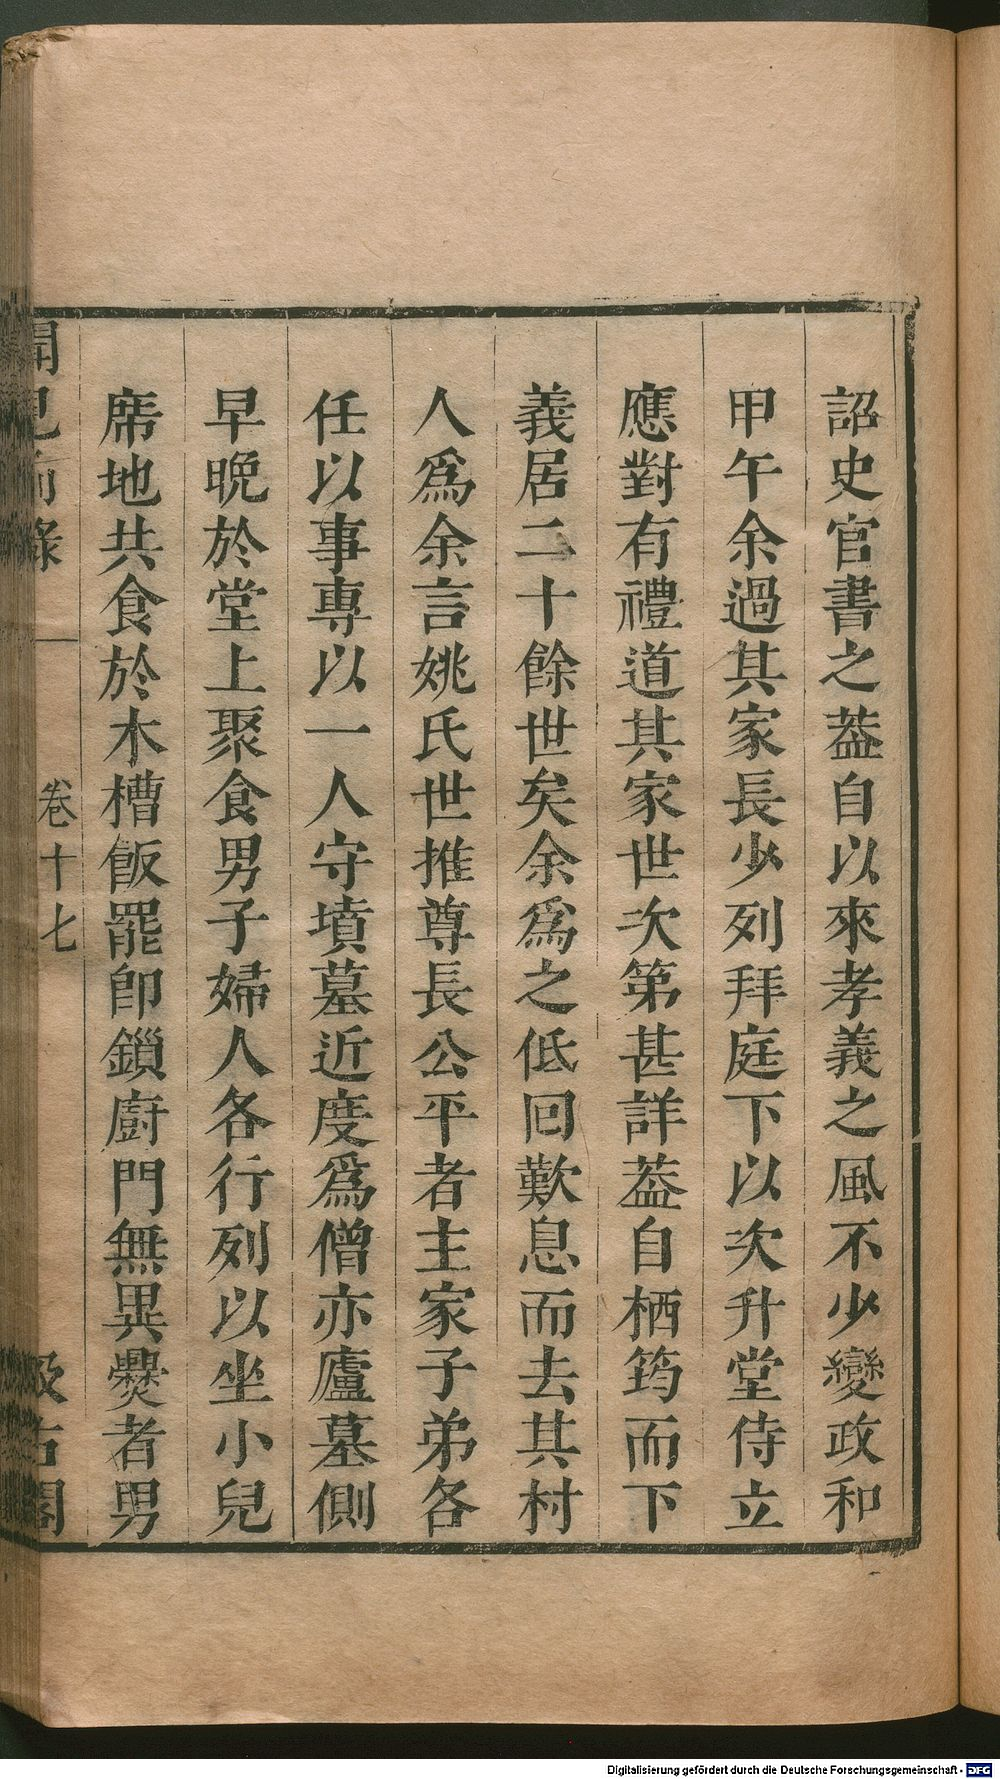 詔史官書之葢自以來孝義之風不少變政和
甲午余過其家長少列拜庭下以次升堂侍立
應對有禮道其家世次第甚詳葢自栖筠而下
義居二十餘世矣余爲之低回歎息而去其村
人爲余言姚氏世推尊長公平者主家子弟各
任以事專以一人守墳墓近度爲僧亦廬墓側
早晩於堂上聚食男子婦人各行列以坐小兒
席地共食於木槽飯罷卽鎖廚門無異爨者男
聞見前錄
卷十七
汲古閣
Digitalisierung gefördert durch die Deutsche Forschungsgemeinschaft - DFG